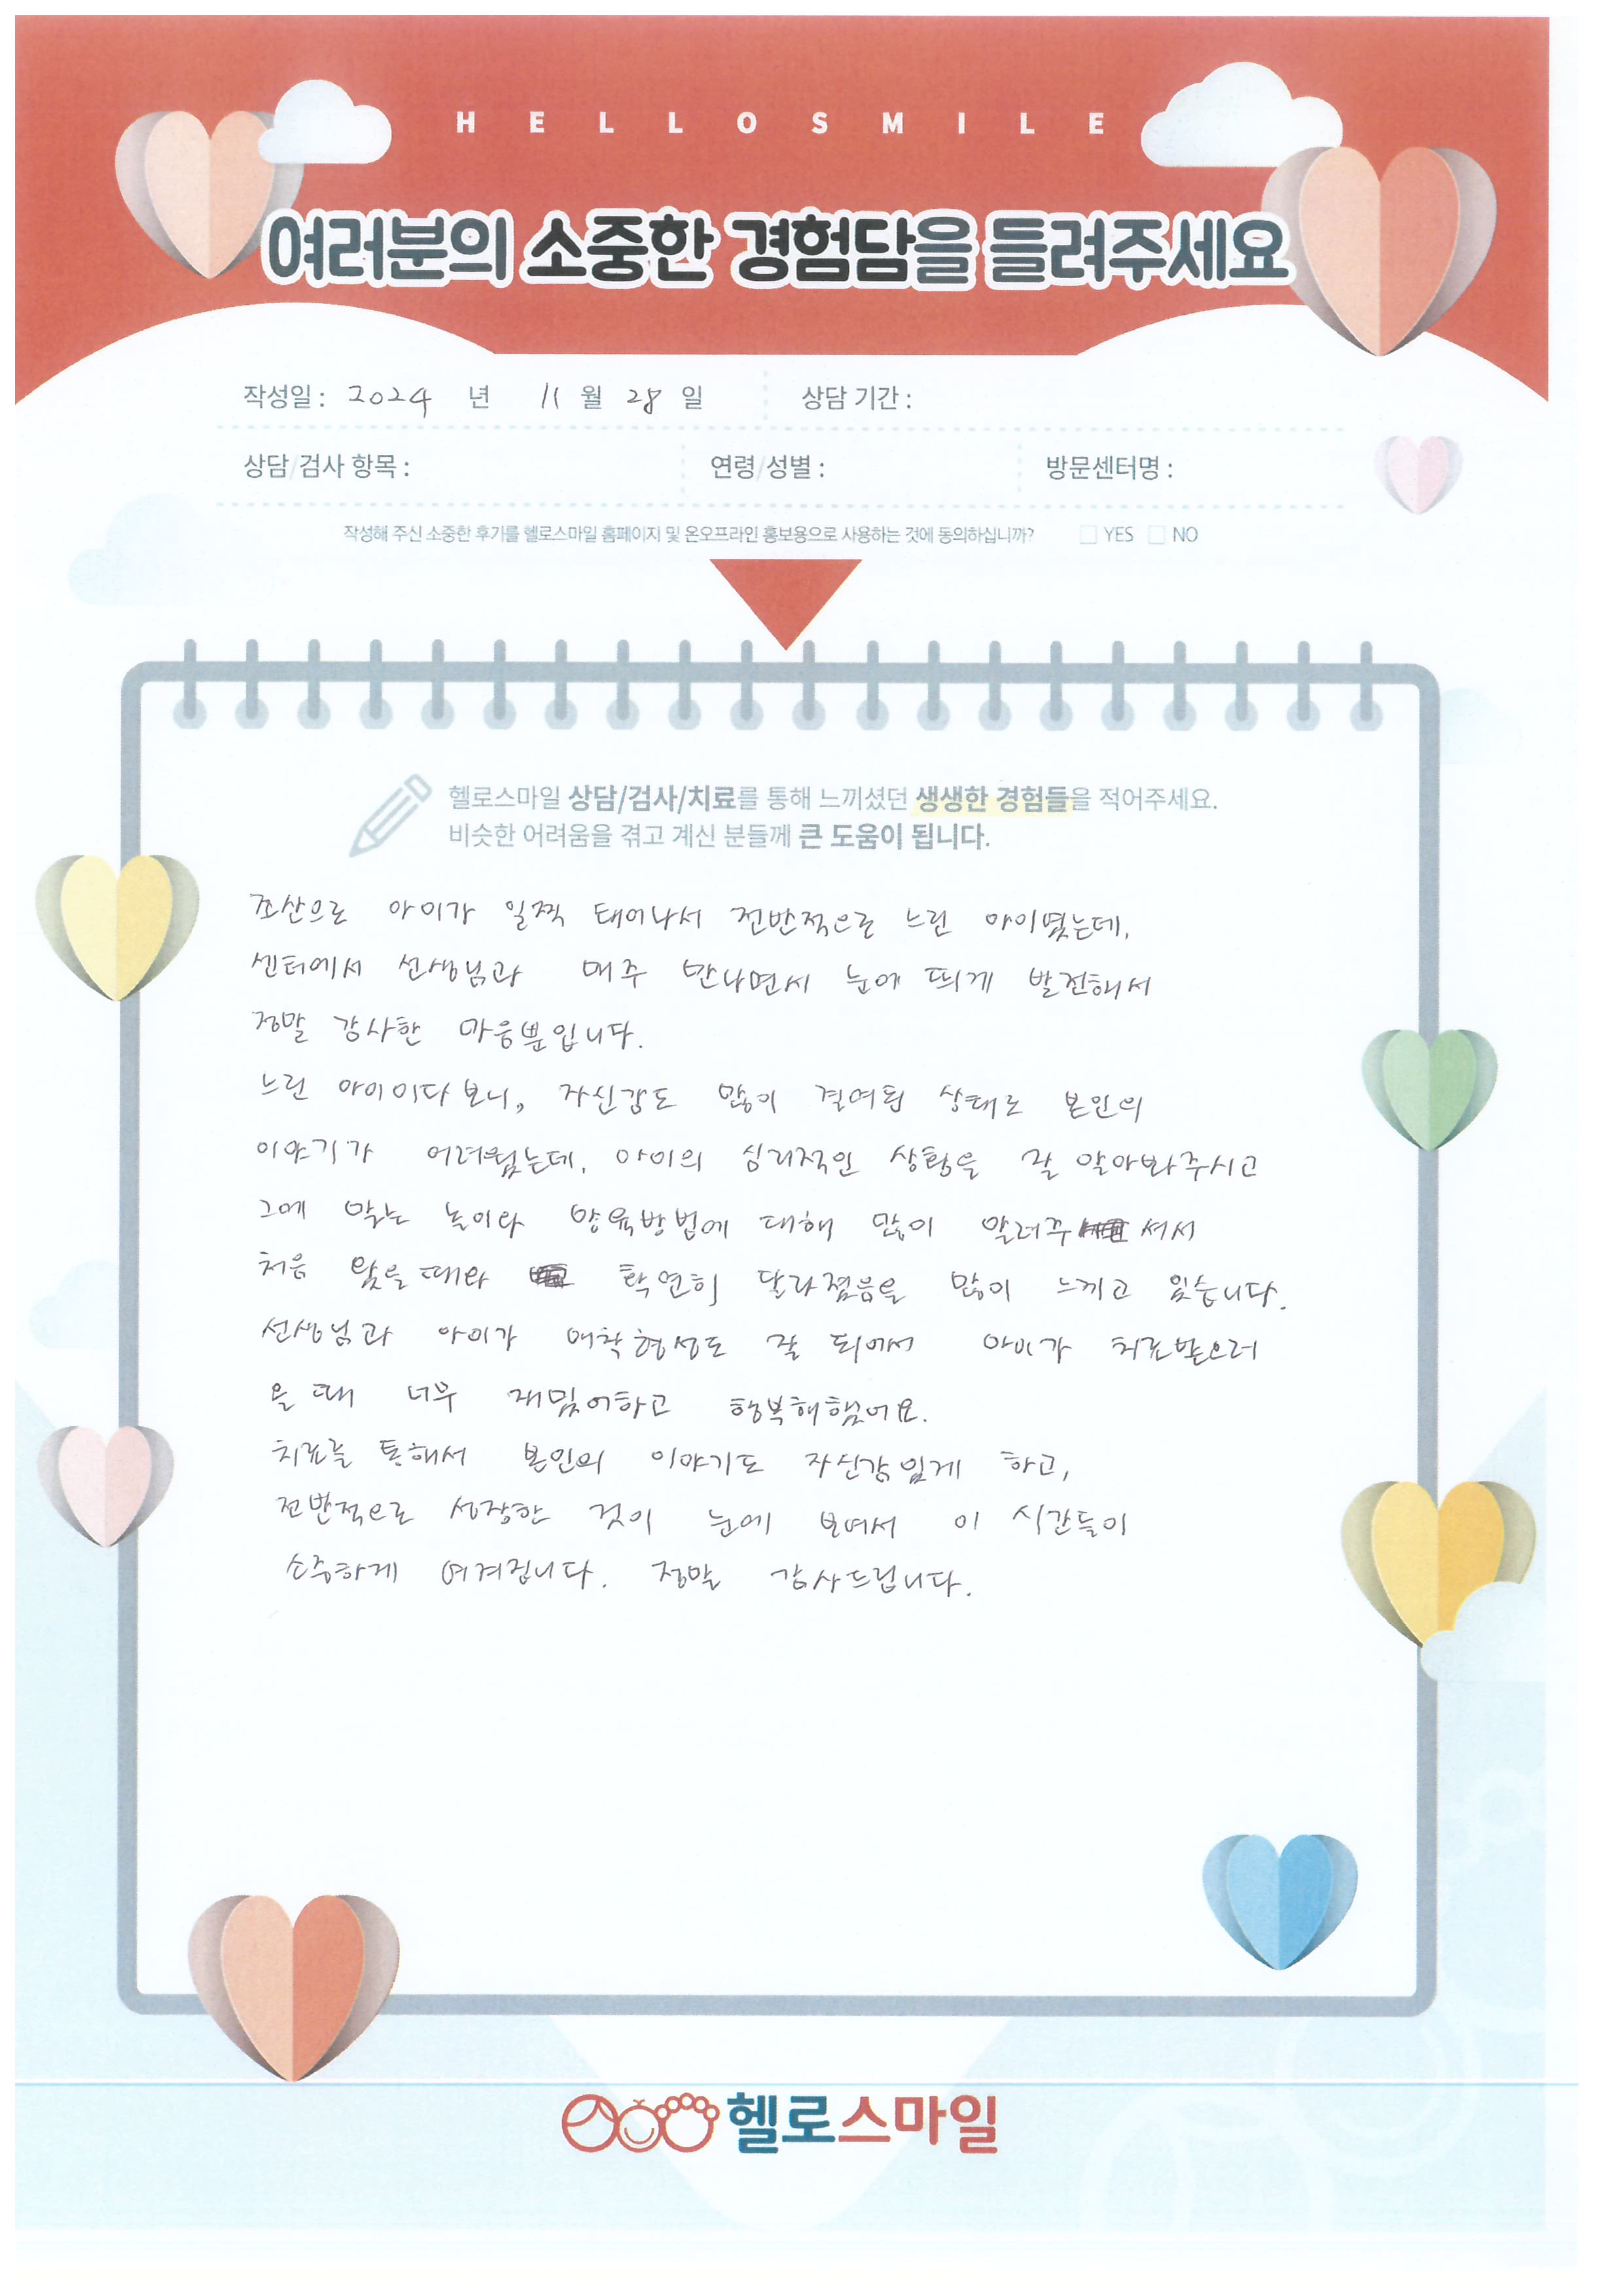 HELLOSMILE
여러분의 소중한 경험담을 들려주세요
작성일 : 2024 년 11 월 28 일 상담 기간 :
상담/검사 항목 : 연령/성별 : 방문센터명 :
작성해 주신 소중한 후기를 헬로스마일 홈페이지 및 온오프라인 홍보용으로 사용하는 것에 동의하십니까? YES NO
헬로스마일 상담/검사/치료를 통해 느끼셨던 생생한 경험들을 적어주세요.
비슷한 어려움을 겪고 계신 분들께 큰 도움이 됩니다.
조산으로 아이가 일찍 태어나서 전반적으로 느린 아이였는데,
센터에서 선생님과 매주 만나면서 눈에 띄게 발전해서
정말 감사한 마음뿐입니다.
느린 아이이다 보니, 자신감도 많이 결여된 상태로 본인의
이야기가 어려웠는데, 아이의 심리적인 상황을 잘 알아봐주시고
그에 맞는 놀이와 양육방법에 대해 많이 알려주셔서
처음 왔을 때와 확연히 달라졌음을 많이 느끼고 있습니다.
선생님과 아이가 애착형성도 잘 되어서 아이가 치료받으러
올 때 너무 재밌어하고 행복해했어요.
치료를 통해서 본인의 이야기도 자신감있게 하고,
전반적으로 성장한 것이 눈에 보여서 이 시간들이
소중하게 여겨집니다. 정말 감사드립니다.
헬로스마일